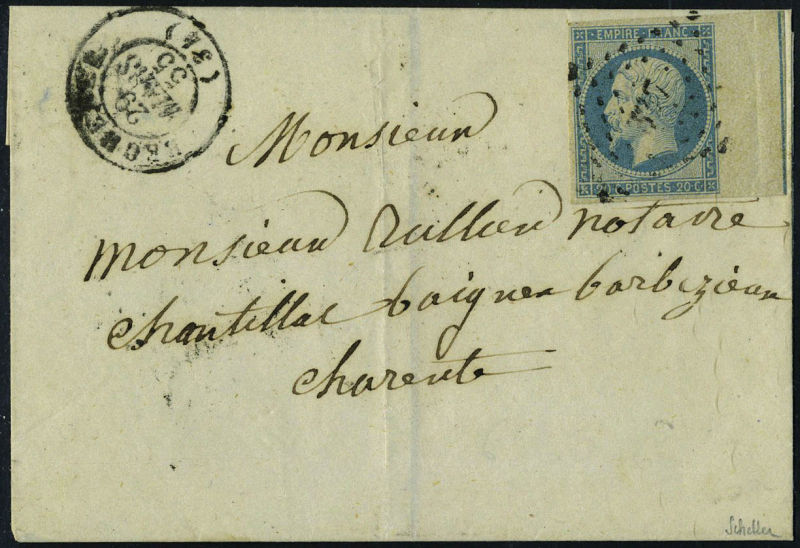 (34)
29
MARS
55
EMPIRE FRANC
20 C POSTES 20 C
Monsieur
Monsieur Rullier notaire
chantillac baignes barbezieux
charente
Scheller